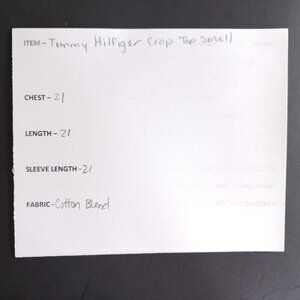 ITEM - Tommy Hilfigar Crop Top Small
CHEST - 21
LENGTH - 21
SLEEVE LENGTH - 21
FABRIC - Cotton Blend